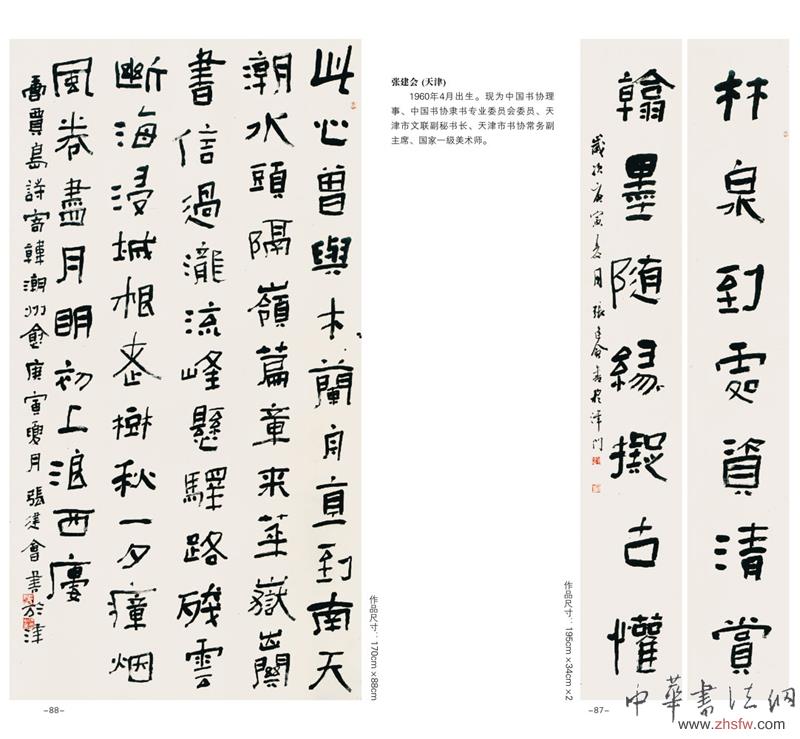 林泉到處資清賞
翰墨随緣擬古懽
歲次庚寅夏月 張建會書於津門
作品尺寸：195cm×34cm×2
-87-
张建会 (天津)
1960年4月出生。现为中国书协理
事、中国书协隶书专业委员会委员、天
津市文联副秘书长、天津市书协常务副
主席、国家一级美术师。
此心曾與木蘭舟直到南天
潮水頭隔嶺篇章來華嶽出關
書信過瀧流峰懸驛路殘雲
斷海浸城根老樹秋一夕瘴烟
風卷盡月明初上浪西廔
賈島詩寄韓潮州愈庚寅夏月張建會書於津
作品尺寸：170cm×88cm
-88-
中華書法網
www.zhsfw.com